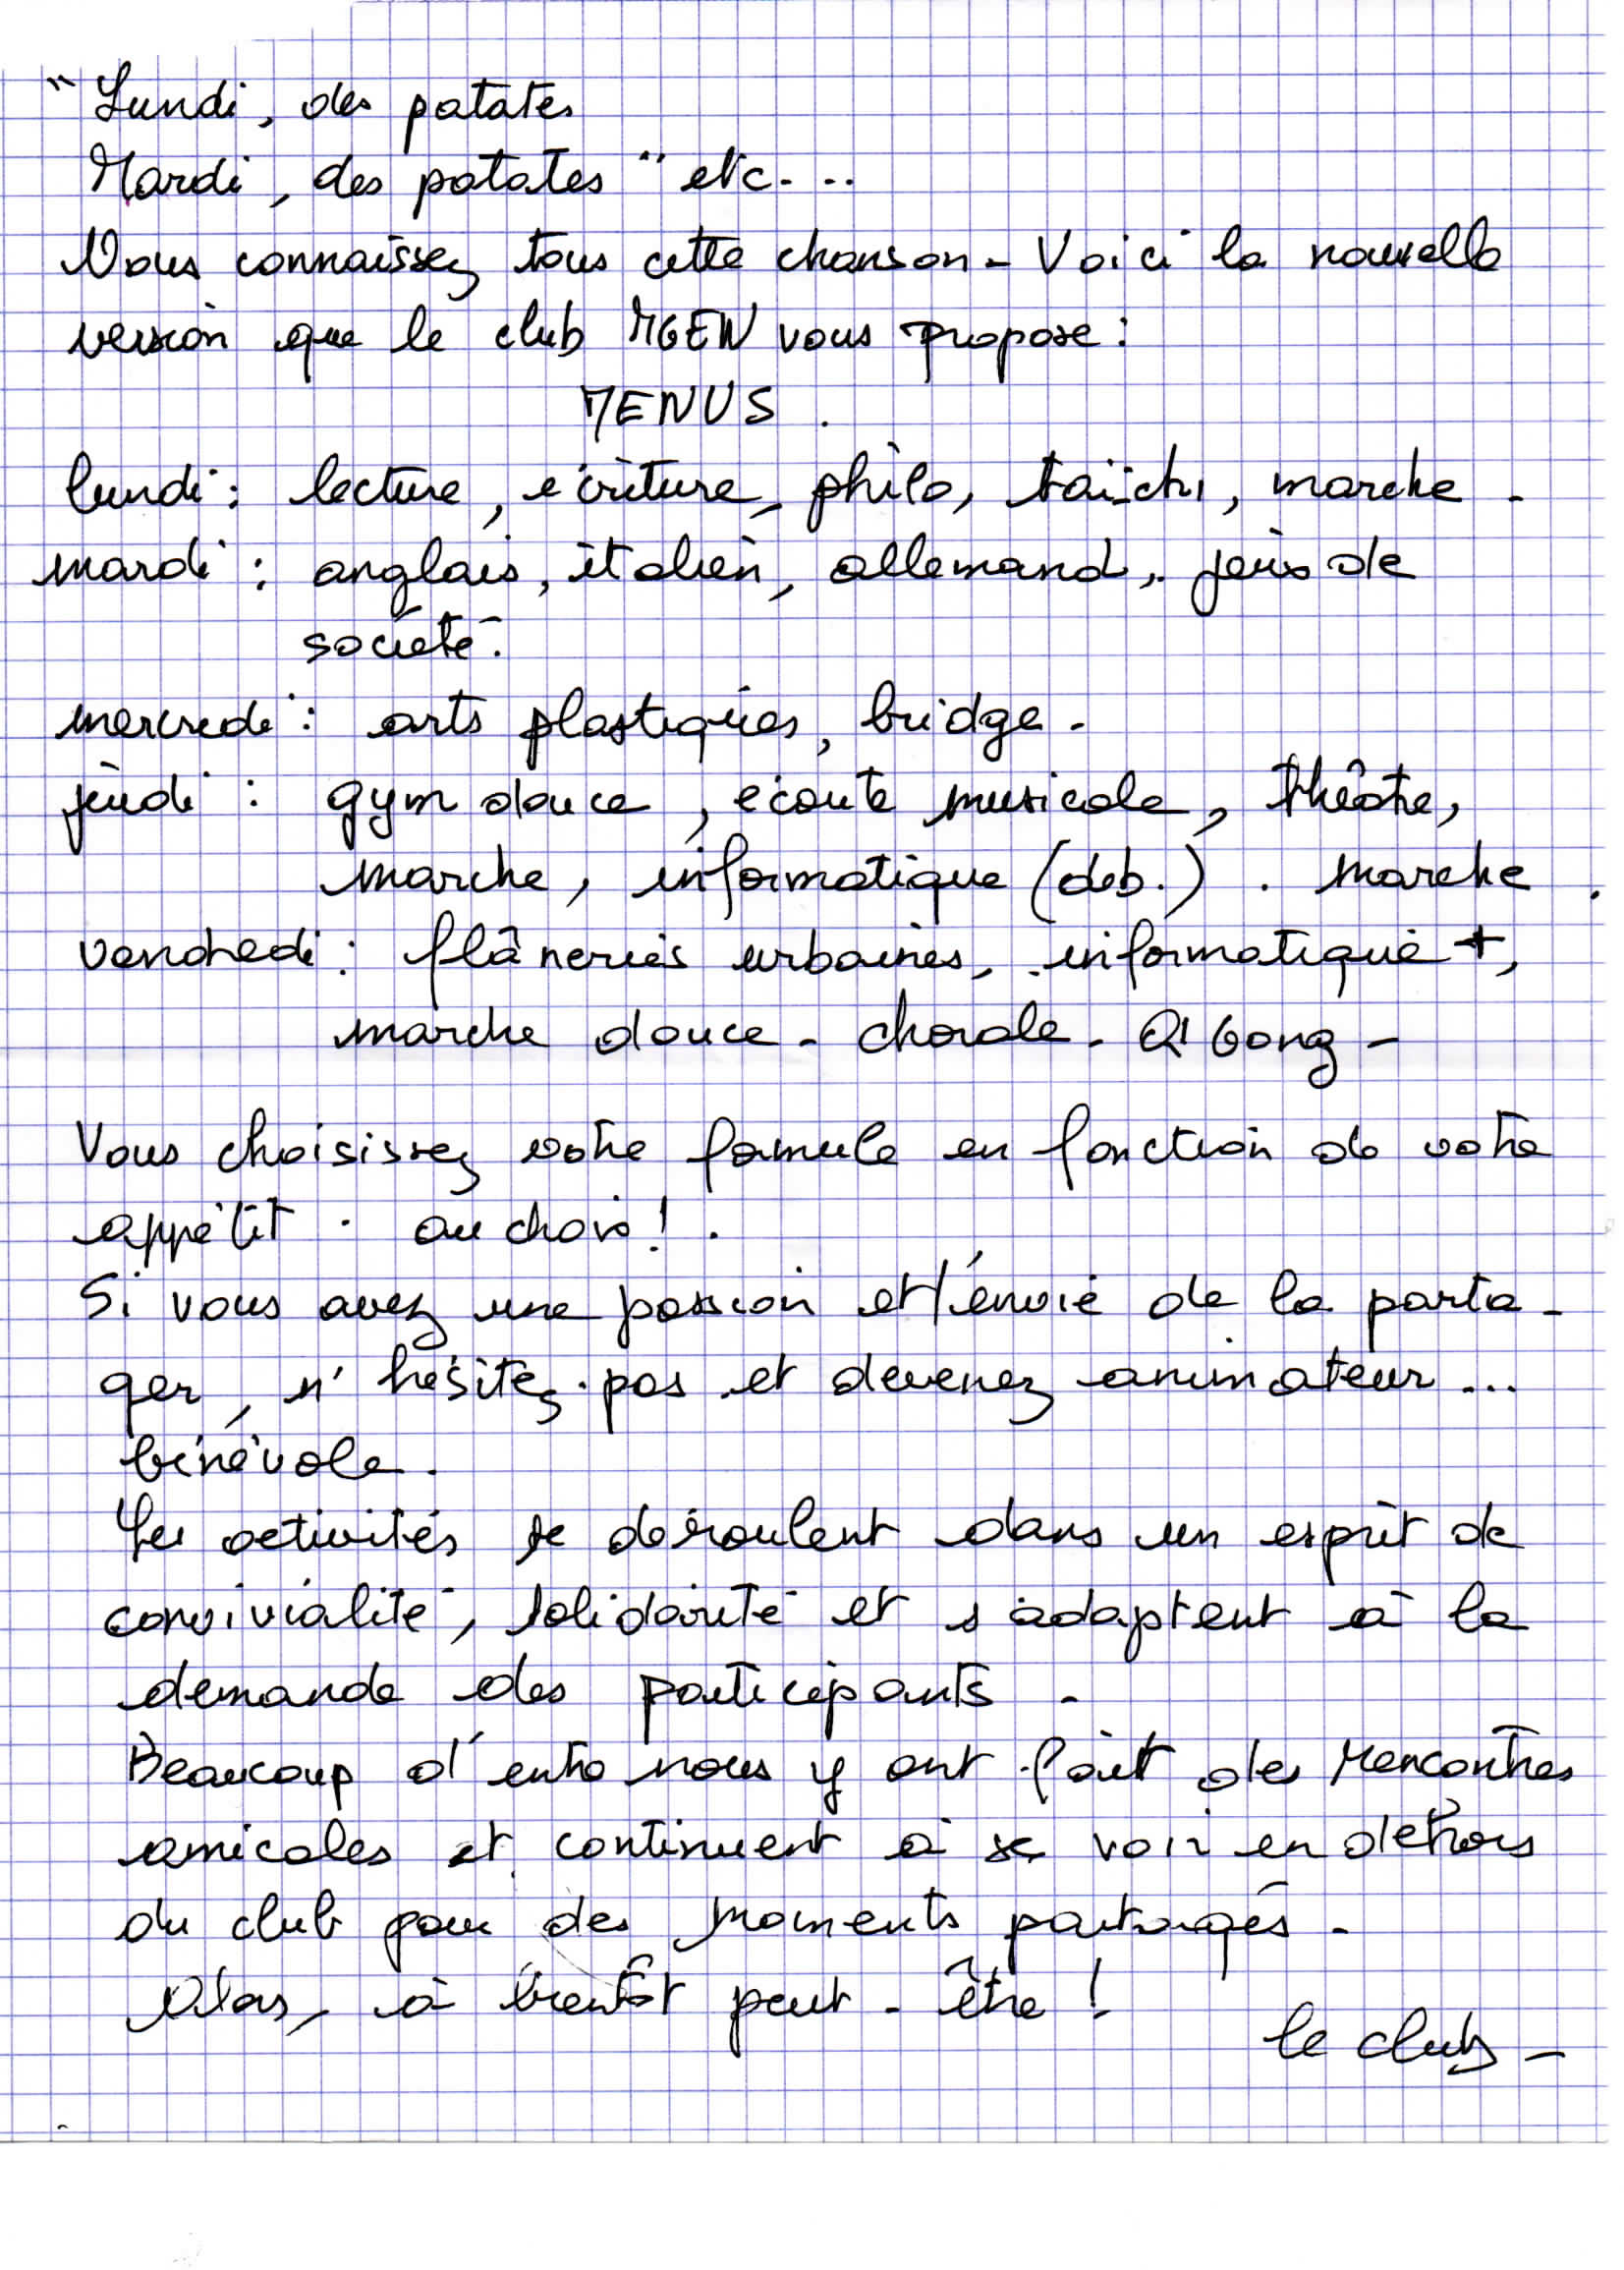 "Lundi, des patates
Mardi, des patates" etc...
Vous connaissez tous cette chanson - Voici la nouvelle
version que le club MGEN vous propose :
MENUS.
lundi : lecture, écriture, philo, taï-chi, marche -
mardi : anglais, italien, allemand, jeux de
société.
mercredi : arts plastiques, bridge.
jeudi : gym douce, écoute musicale, théâtre,
marche, informatique (deb.). marche.
vendredi : flâneries urbaines, informatique +,
marche douce - chorale - QI Gong -
Vous choisissez votre formule en fonction de votre
appétit. au choix !.
Si vous avez une passion et l'envie de la parta-
ger, n'hésitez pas et devenez animateur...
bénévole.
Les activités se déroulent dans un esprit de
convivialité, solidarité et s'adaptent à la
demande des participants -
Beaucoup d'entre nous y ont fait des rencontres
amicales et continuent à se voir en dehors
du club pour des moments partagés -
Alors, à bientôt peut-être !
le club -